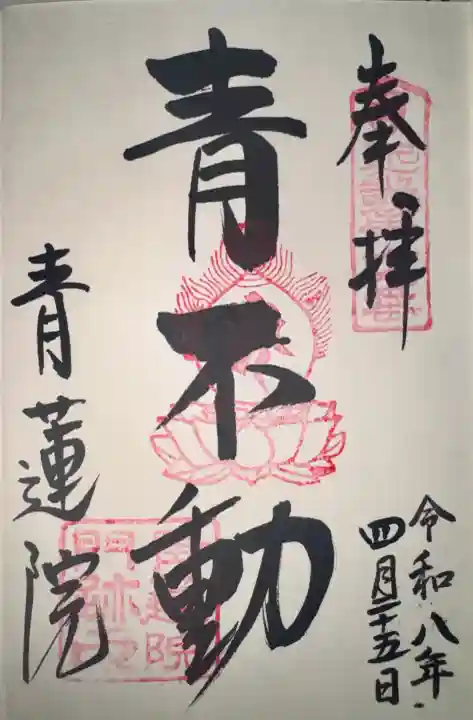 奉拝
令和八年
四月二十五日
青不動
青蓮院